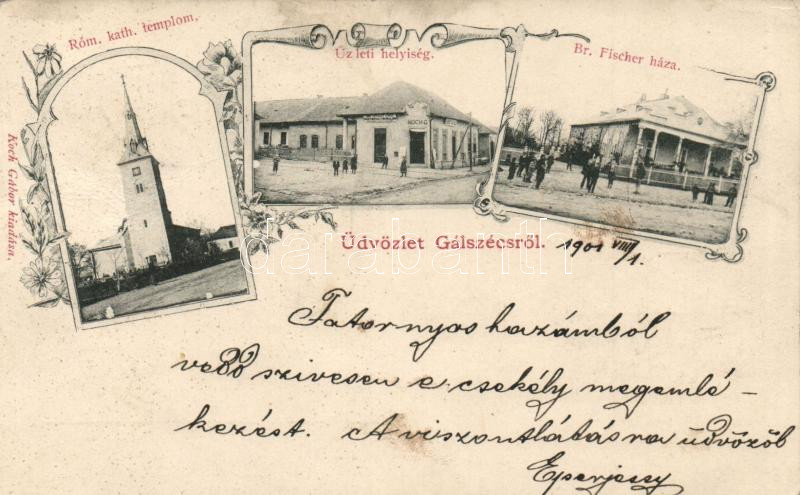 Róm. kath. templom.
Üzleti helyiség.
Br. Fischer háza.
Koch Gábor kiadása.
KOCH G
Üdvözlet Gálszécsről. 1901 VIII/1.
Tatornyos hazámból
vedd szivesen e csekély megemlé-
kezést. A viszontlátásra üdvözöl
Eperjessy
darabanth